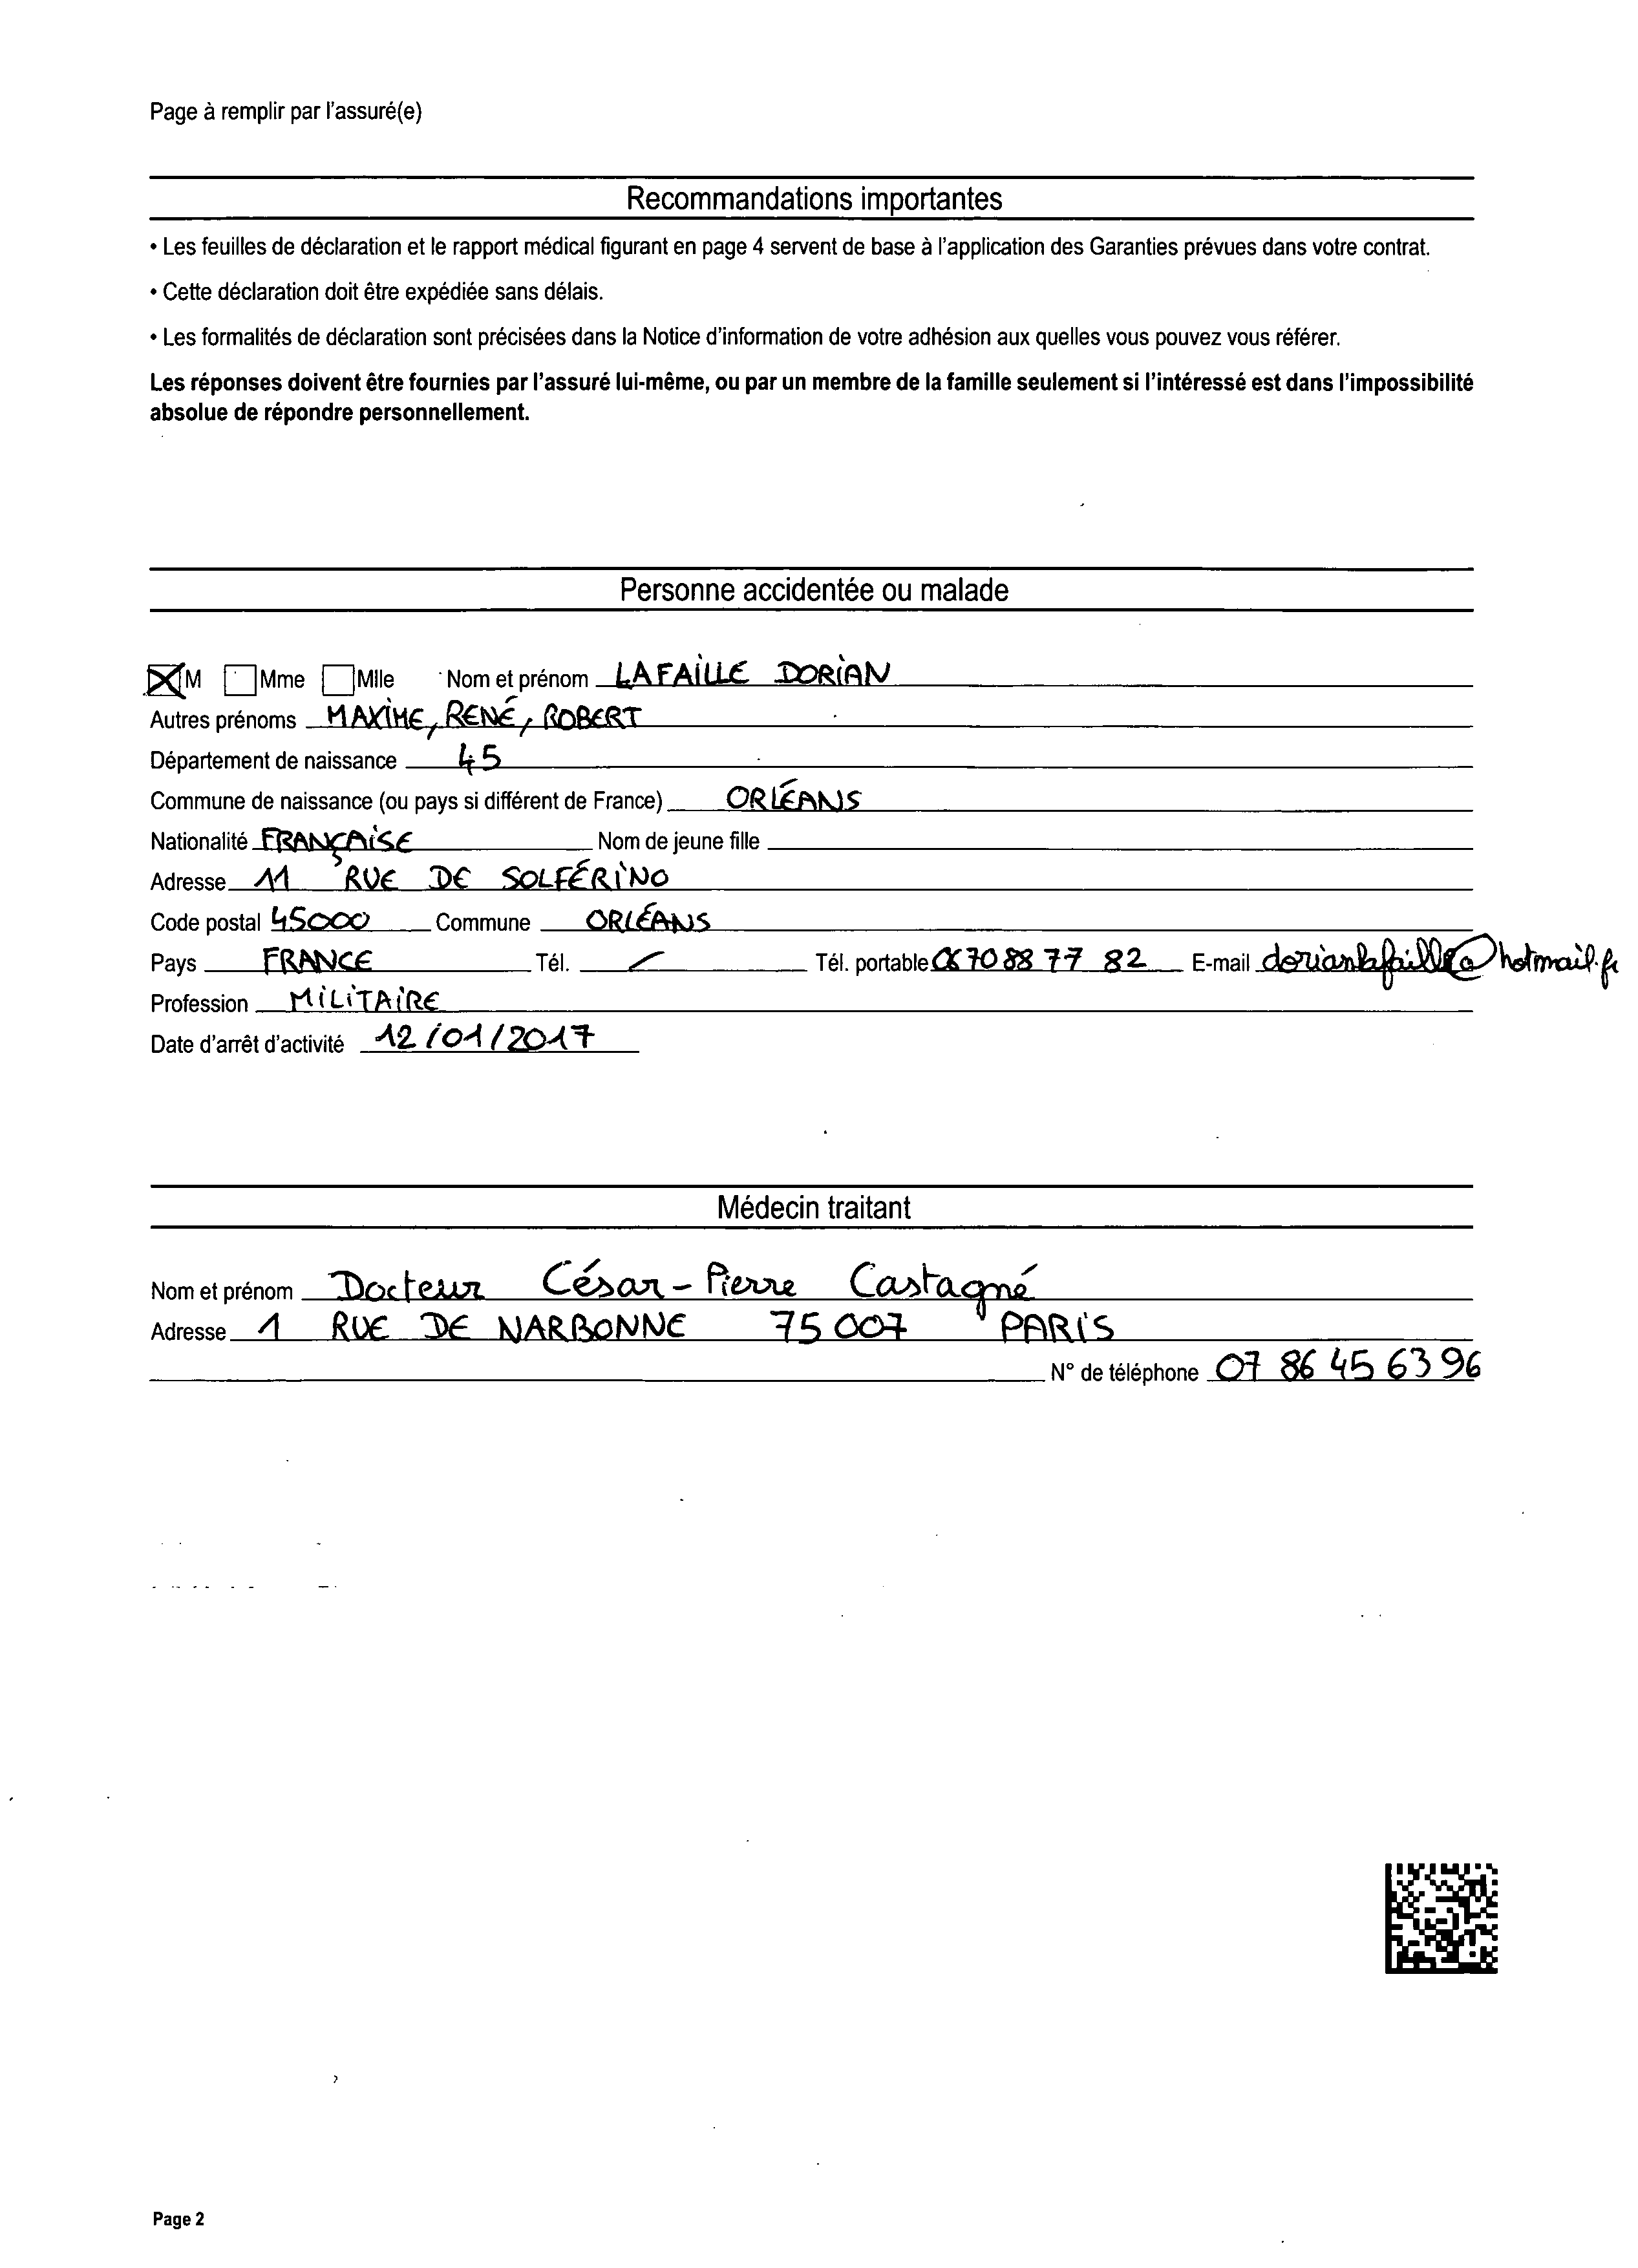 Page à remplir par l'assuré(e)
Recommandations importantes
• Les feuilles de déclaration et le rapport médical figurant en page 4 servent de base à l'application des Garanties prévues dans votre contrat.
• Cette déclaration doit être expédiée sans délais.
• Les formalités de déclaration sont précisées dans la Notice d'information de votre adhésion aux quelles vous pouvez vous référer.
Les réponses doivent être fournies par l'assuré lui-même, ou par un membre de la famille seulement si l'intéressé est dans l'impossibilité
absolue de répondre personnellement.
Personne accidentée ou malade
M Mme Mlle Nom et prénom LAFAILLE DORIAN
Autres prénoms MAXIME, RENÉ, ROBERT
Département de naissance 45
Commune de naissance (ou pays si différent de France) ORLÉANS
Nationalité FRANÇAISE Nom de jeune fille
Adresse 11 RUE DE SOLFÉRINO
Code postal 45000 Commune ORLÉANS
Pays FRANCE Tél. / Tél. portable 06 70 88 77 82 E-mail dorianlafaille@hotmail.fr
Profession MILITAIRE
Date d'arrêt d'activité 12/01/2017
Médecin traitant
Nom et prénom Docteur César-Pierre Castagné
Adresse 1 RUE DE NARBONNE 75007 PARIS
N° de téléphone 07 86 45 63 96
Page 2